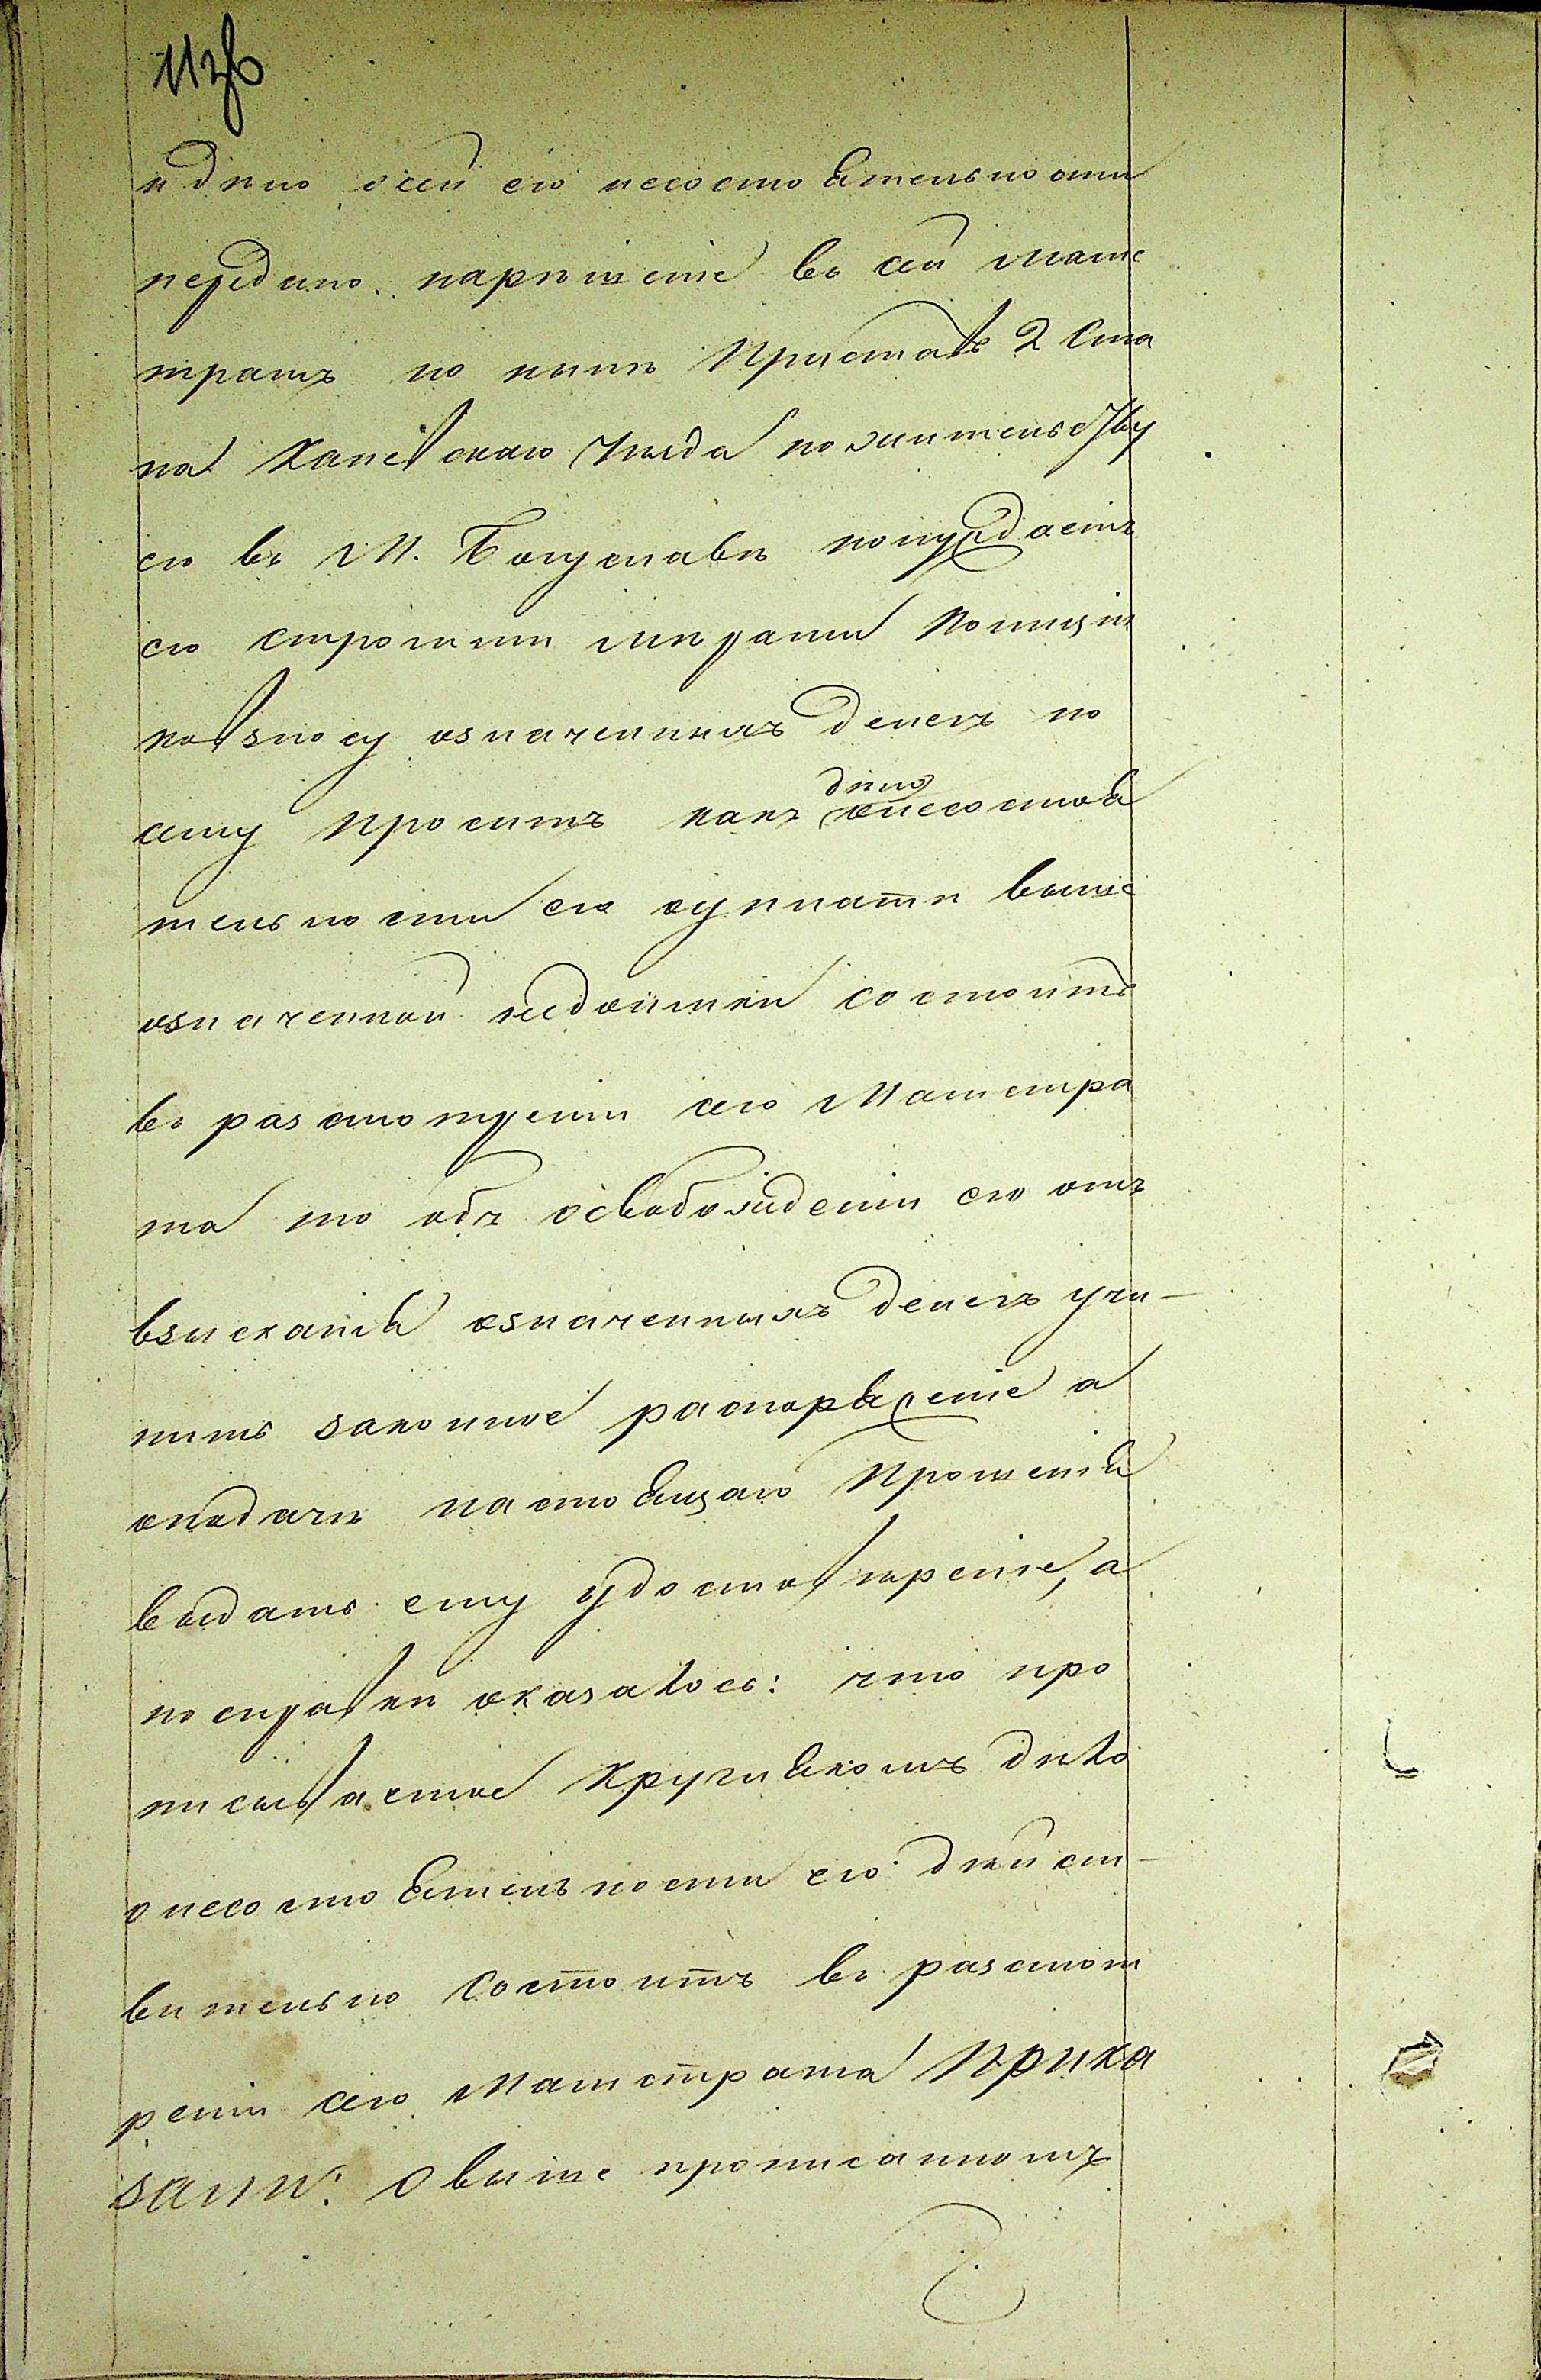 и дѣло о сей его несостоятельности
передано на рѣшеніе въ сей Маги
тратъ но нынѣ Приставъ 2 Ста
на Каневскаго уѣзда по жительству
его въ М. Богуславѣ понуждаетъ
его строгими мѣрами Полиціи
ко взносу означенныхъ денегъ по
сему проситъ какъ дѣло онесостоя
тельности его куплатѣ выше
означенной недоимки состоитъ
въ разсмотреніи сего Магистра
та то объ освобожденіи его отъ
взысканія означенныхъ денегъ учи-
нить законное распоряженіе а
оподачи настоящаго прошенія
выдать ему удостовѣреніе, а
по справкѣ оказалось: что про
писываемое Кругликомъ дѣло
о несостоятельности его дѣйст-
вительно состоитъ въ разсмот
реніи сего Магистрата Прика
зали: О выше прописанномъ